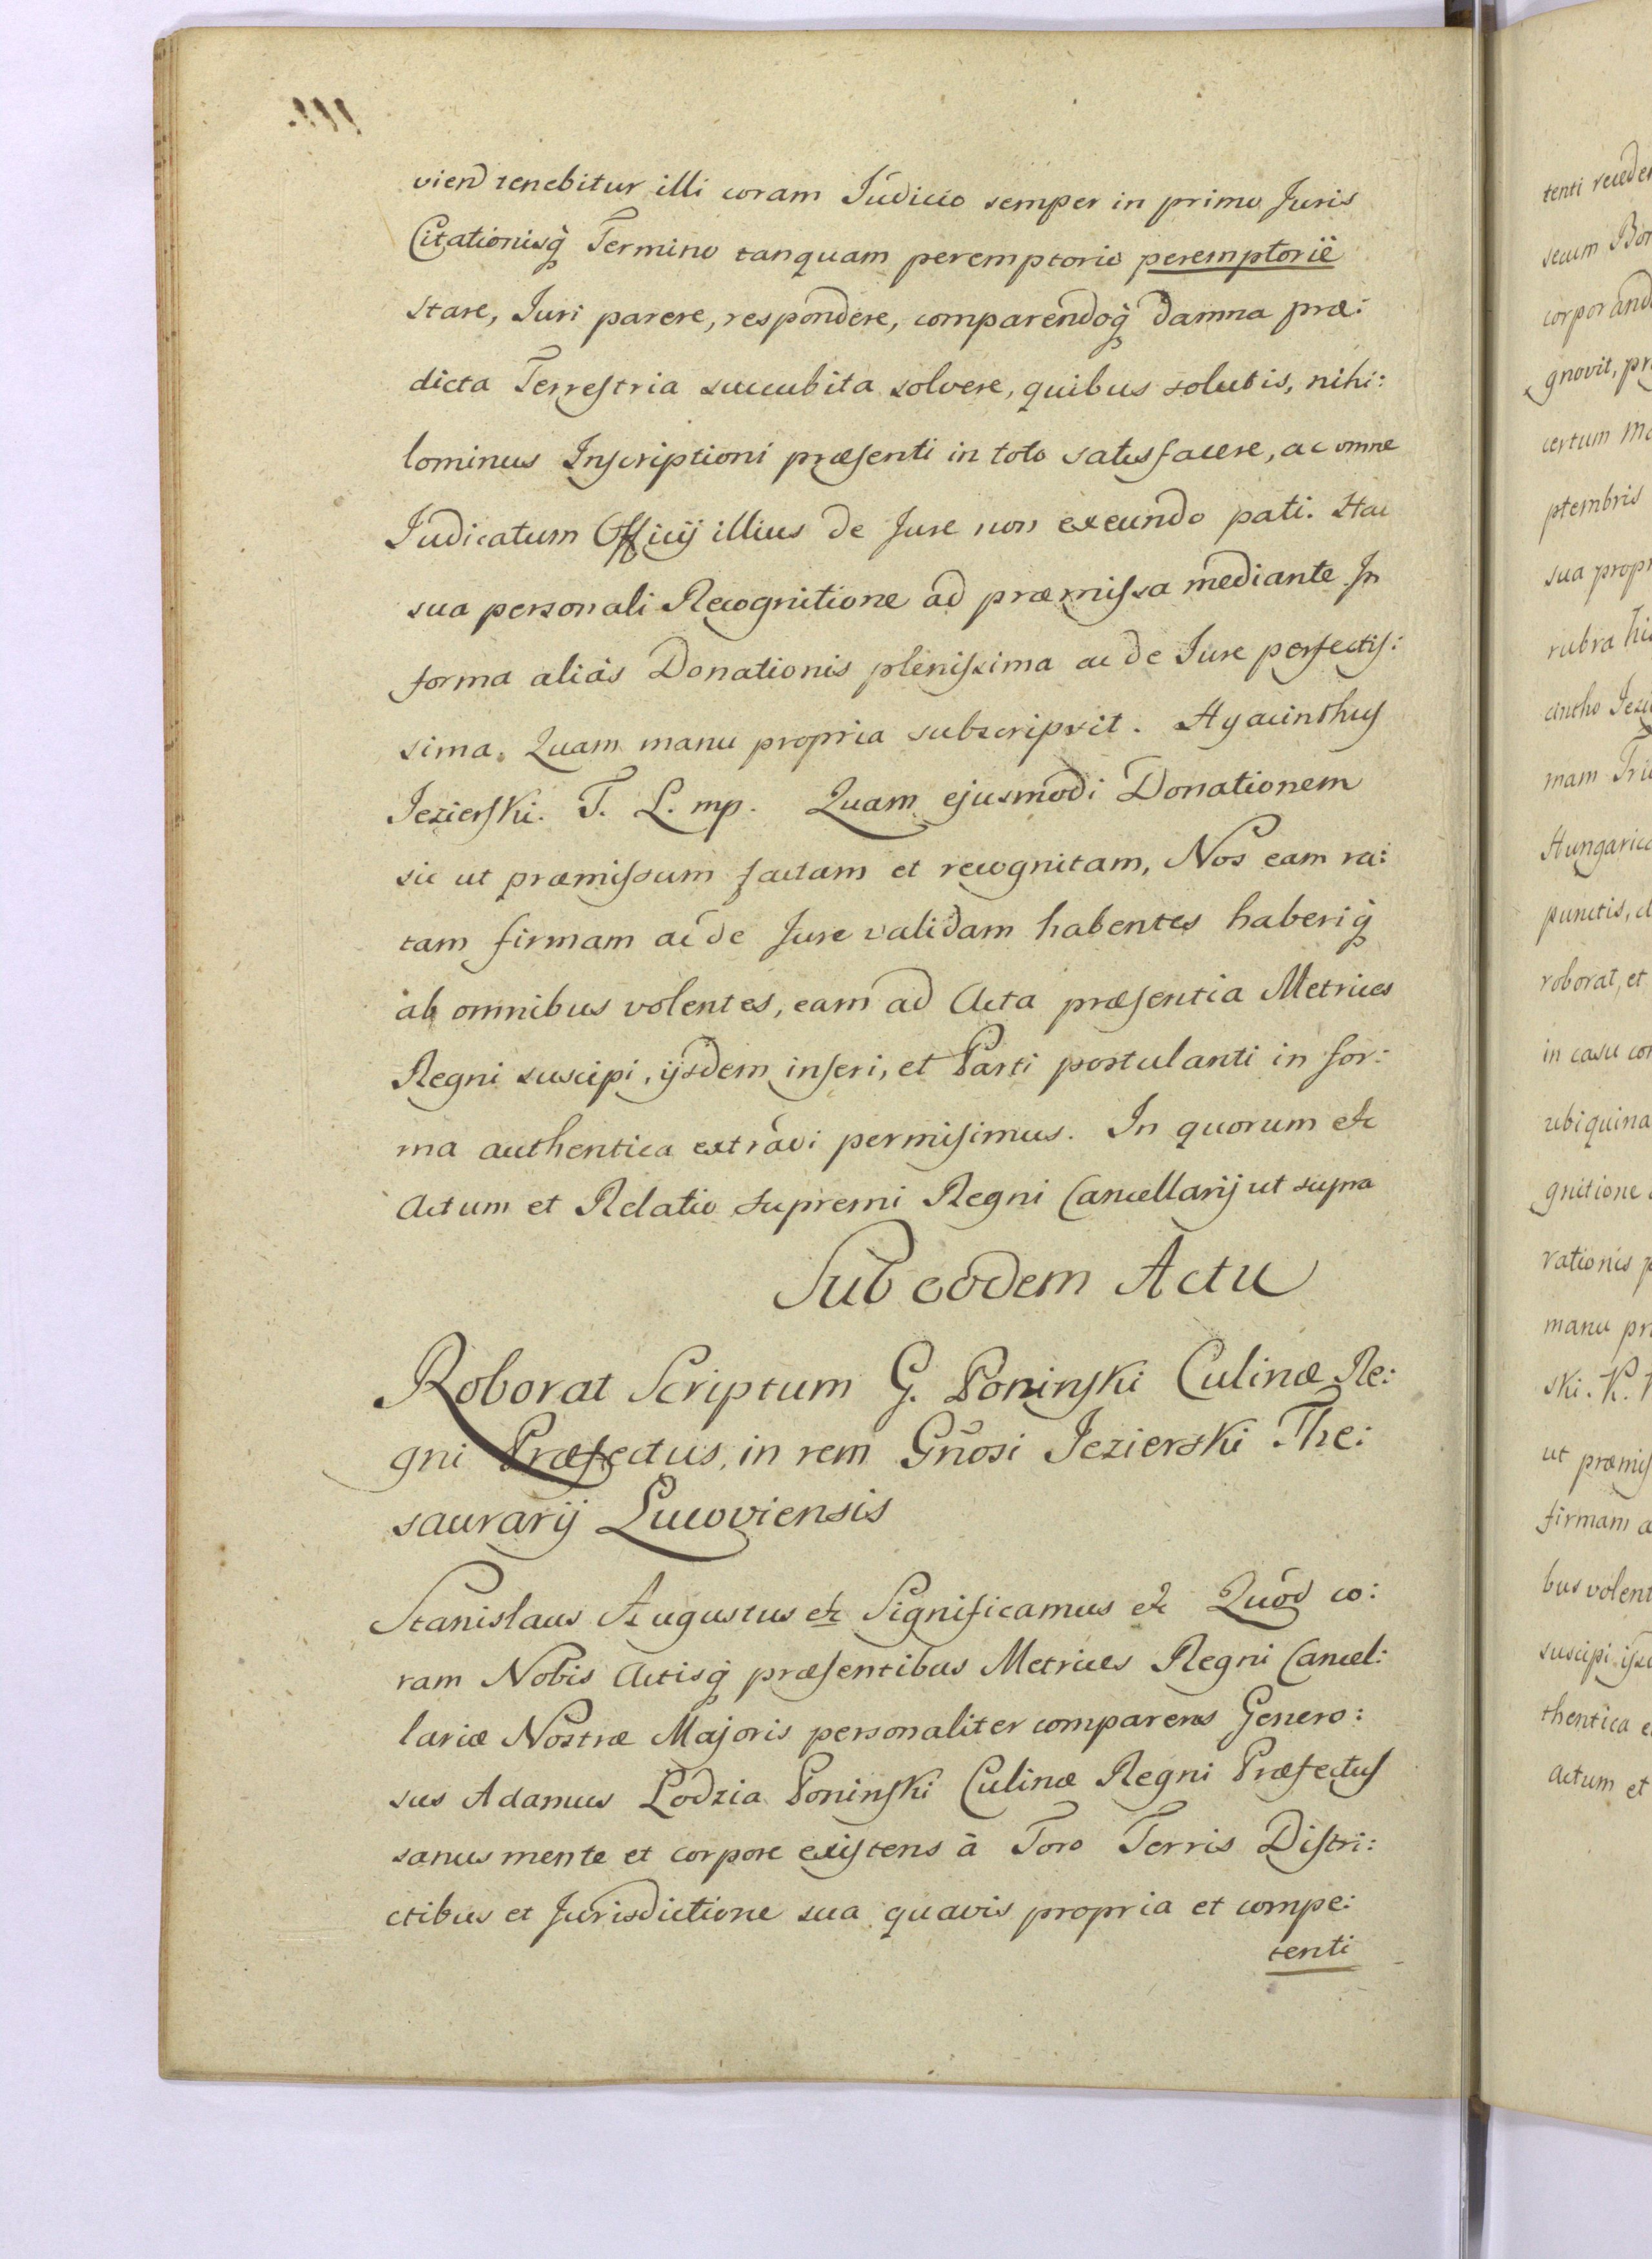 viend tenebitur illi coram Judicio semper in primo Juris
Citationisq̀ Termino tanquam peremptorio peremptoriè
stare, Juri parere, respondere, comparendoq̀ damna præ:
dicta Terrestria succubita solvere, quibus solutis, nihi:
lominus Inscriptioni præsenti in toto satisfacere, ac omne
Judicatum Officij illius de Jure non exeundo pati. Hac
sua personali Recognitione ad præmissa mediante In
forma aliàs Donationis plenissima ac de Jure perfectis:
sima. Quam manu propria subscripsit. Hyacinthus
Jezierski. T. L. mp. Quam ejusmodi Donationem
sic ut præmissum factam et recognitam, Nos eam ra:
tam firmam ac de Jure validam habentes haberiq̀
ab omnibus volentes, eam ad Acta præsentia Metrices
Regni suscipi, ijsdem inseri, et Parti postulanti in for:
ma authentica extradi permisimus. In quorum etc
Actum et Relatio supremi Regni Cancellarij ut supra
Sub eodem Actu
Roborat Scriptum G. Poninski Culinæ Re:
gni Præfectus, in rem Gn̄osi Jezierski The:
saurarij Lucoviensis
Stanislaus Augustus etc Significamus etc Quòd co:
ram Nobis Actisq̀ præsentibus Metrices Regni Cancel:
lariæ Nostræ Majoris personaliter comparens Genero:
sus Adamus Lodzia Poninski Culinæ Regni Præfectus
sanus mente et corpore existens à Foro Terris Distri:
ctibus et Jurisdictione sua quavis propria et compe:
tenti
tenti
secum
gnovit,
certum
ptembris
sua
rubra
mam
punctis,
roborat, et
in casu
ubiquina
gnitione
rationis
manu
ski. K.
ut
firmam
bus
suscipi
thentica
Actum et